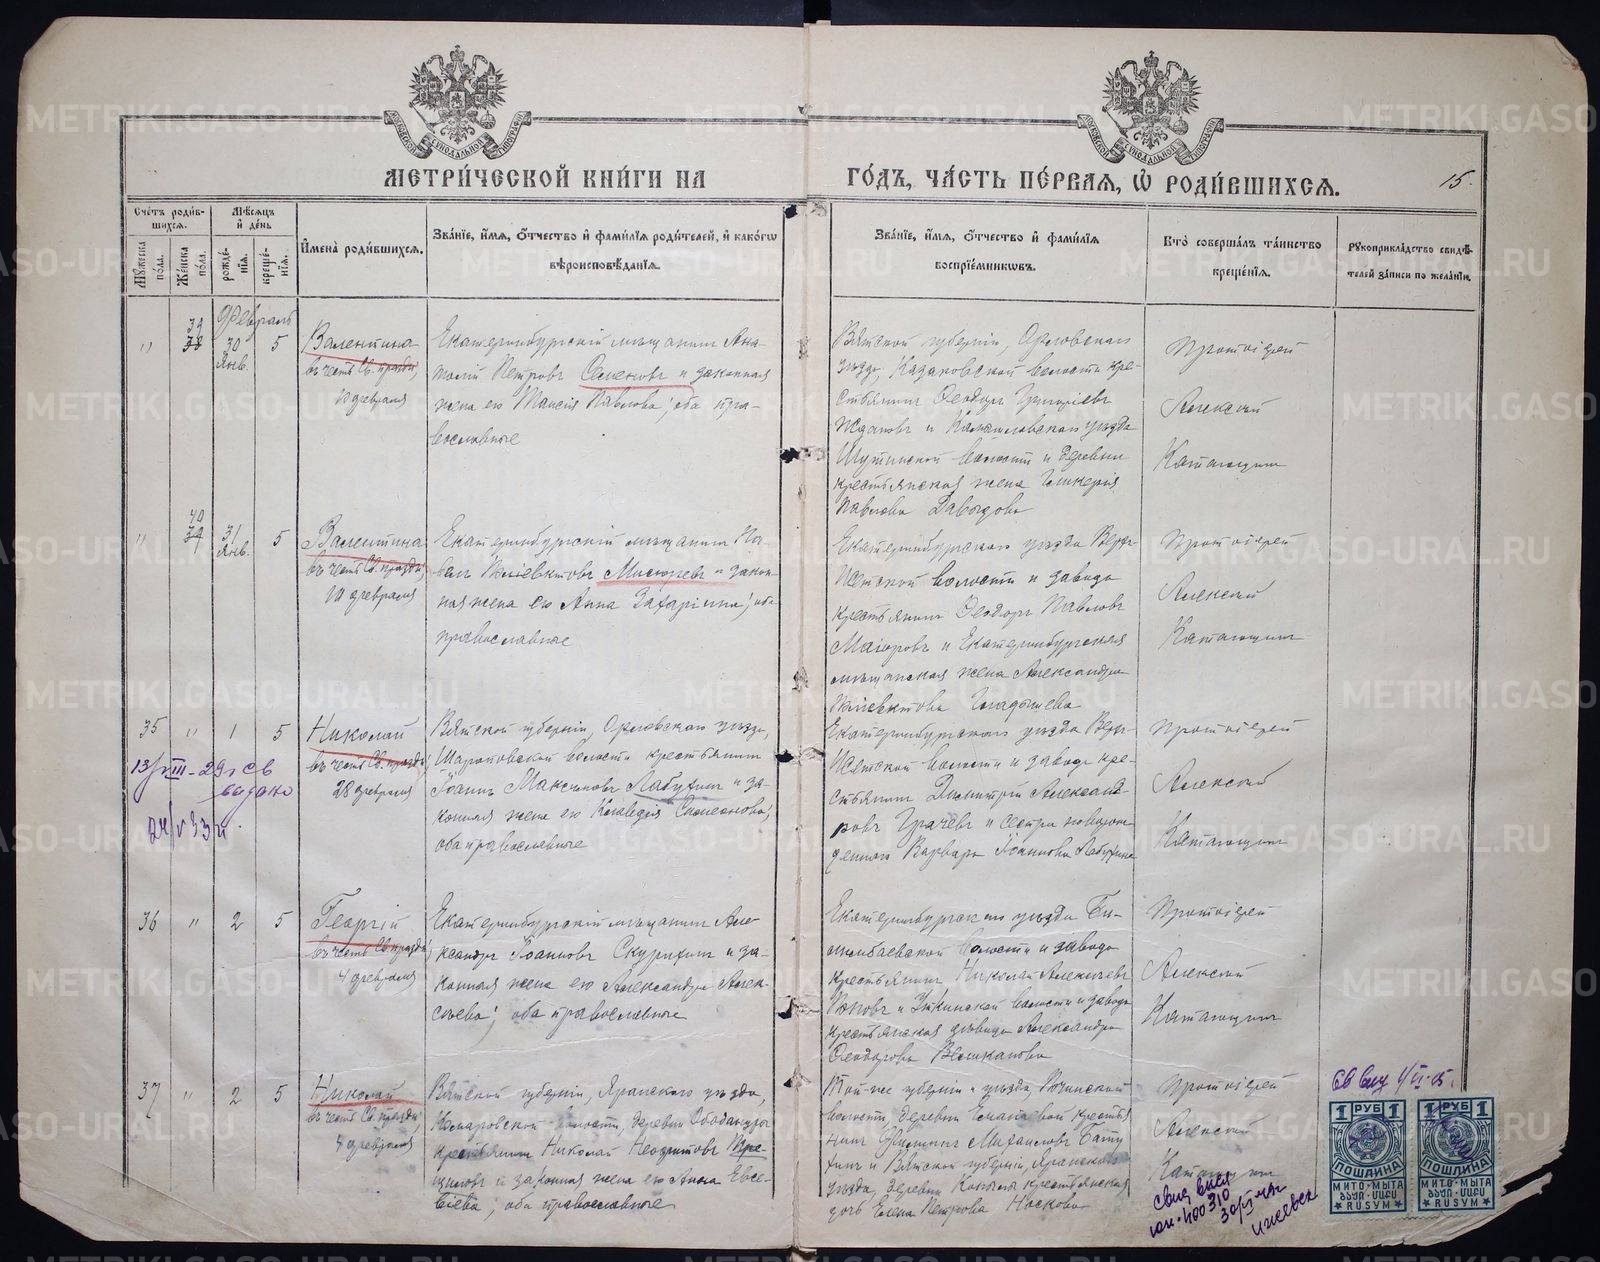 МЕТРИ́ЧЕСКОЙ КНИ́ГИ НА
ГО́ДЪ, ЧА́СТЬ ПЕ́РВАЯ, Ѡ РОДИ́ВШИХСЯ.
15.
Счетъ роди́в-
шихся.
Мѣсяцъ
и де́нь
Мужеска
пола.
Женска
пола.
рожде́-
нія.
креще́-
нія.
Имена̀ роди́вшихся.
Зва́ніе, и́мя, о́тчество и фами́лія роди́телей, и како́гѡ
вѣроисповѣ́данія.
Зва́ніе, и́мя, о́тчество и фами́лія
воспріе́мникѡвъ.
Кто̀ соверша́лъ та́инство
креще́нія.
Рукоприкла́дство свидѣ́-
телей за́писи по жела́нію.
Февраль
" 39 30 Янв. 5
Валентина
въ честь Св. празд.
10 февраля
Екатеринбургскій мѣщанинъ Ана-
толій Петровъ Семеновъ и законная
жена его Таисія Павлова; оба пра-
вославные
Вятской губерніи, Орловскаго
уѣзда, Казаковской волости кре-
стьянинъ Ѳеодоръ Григоріевъ
Ждановъ и Камышловскаго уѣзда
Шутинской волости и деревни
крестьянская жена Гликерія
Павлова Давыдова
Протоіерей
Алексій
Катагощинъ
" 40 31 Янв. 5
Валентина
въ честь Св. празд.
10 февраля
Екатеринбургскій мѣщанинъ Па-
велъ Поліевктовъ и закон-
ная жена его Анна Захаріина; оба
православные
Екатеринбургскаго уѣзда Верх-
Исетской волости и завода
крестьянинъ Ѳеодоръ Павловъ
Маіоровъ и Екатеринбургская
мѣщанская жена Александра
Поліевктова Гладышева
Протоіерей
Алексій
Катагощинъ
35 " 1 5
Николай
въ честь Св. празд.
28 февраля
13/VIII-29 г св
выдано
24/V 33 г.
Вятской губерніи, Орловскаго уѣзда,
волости крестьянинъ
Іоаннъ Максимовъ Лабутинъ и за-
конная жена его Клавдія Симеонова;
оба православные
Екатеринбургскаго уѣзда Верх-
Исетской волости и завода кре-
стьянинъ Димитрій Александ-
ровъ Грачевъ и сестра новорож-
деннаго Варвара Іоаннова Лабутина
Протоіерей
Алексій
Катагощинъ
36 " 2 5
Георгій
въ честь Св. празд.
4 февраля
Екатеринбургскій мѣщанинъ Але-
ксандръ Іоанновъ Скурихинъ и за-
конная жена его Александра Алек-
сѣева; оба православные
Екатеринбургскаго уѣзда Би-
лимбаевской волости и завода
крестьянинъ Николай Алексіевъ
Поповъ и Уткинской волости и завода
крестьянская дѣвица Александра
Ѳеодорова Великанова
Протоіерей
Алексій
Катагощинъ
37 " 2 5
Николай
въ честь Св. празд.
4 февраля
Вятской губерніи, Яранскаго уѣзда,
Комаровской волости, деревни
крестьянинъ Николай Неофитовъ
и законная жена его Анна Евсе-
віева; оба православные
Той-же губерніи и уѣзда,
волости, деревни крестья
нинъ Филиппъ Михаиловъ
и Вятской губерніи, Яранскаго
уѣзда, деревни крестьянская
дочь Елена Петрова Носкова
Протоіерей
Алексій
Катагощинъ
1 РУБ 1
ПОШЛИНА
МИТО-МЫТА
RUSYM
1 РУБ 1
ПОШЛИНА
МИТО-МЫТА
RUSYM
METRIKI.GASO-URAL.RU